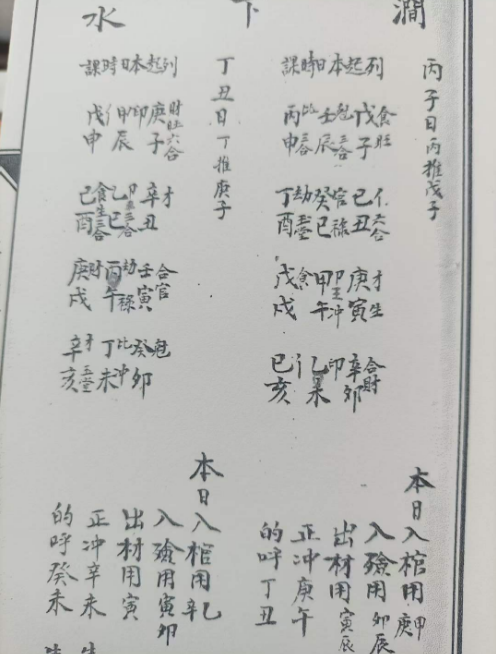 澗下水
丙子日丙推戊子
列起本日時課
戊子 食旺
壬辰 三合
丙申 比三合
己丑 六合
癸巳 官祿
丁酉 劫
庚寅 才生
甲午 卩王冲
戊戌 食
辛卯 合財
乙未 印
己亥
本日入棺用甲庚
入殮用卯辰
出材用寅辰
正冲庚午
的呼丁丑
丁丑日丁推庚子
列起本日時課
庚子 財旺六合
甲辰 印
戊申
辛丑 才
乙巳 三合
己酉 食生三合
壬寅 合官
丙午 劫祿
庚戌 財
癸卯
丁未 比冲
辛亥 才
本日入棺用乙辛
入殮用寅卯
出材用寅
正冲辛未
的呼癸未